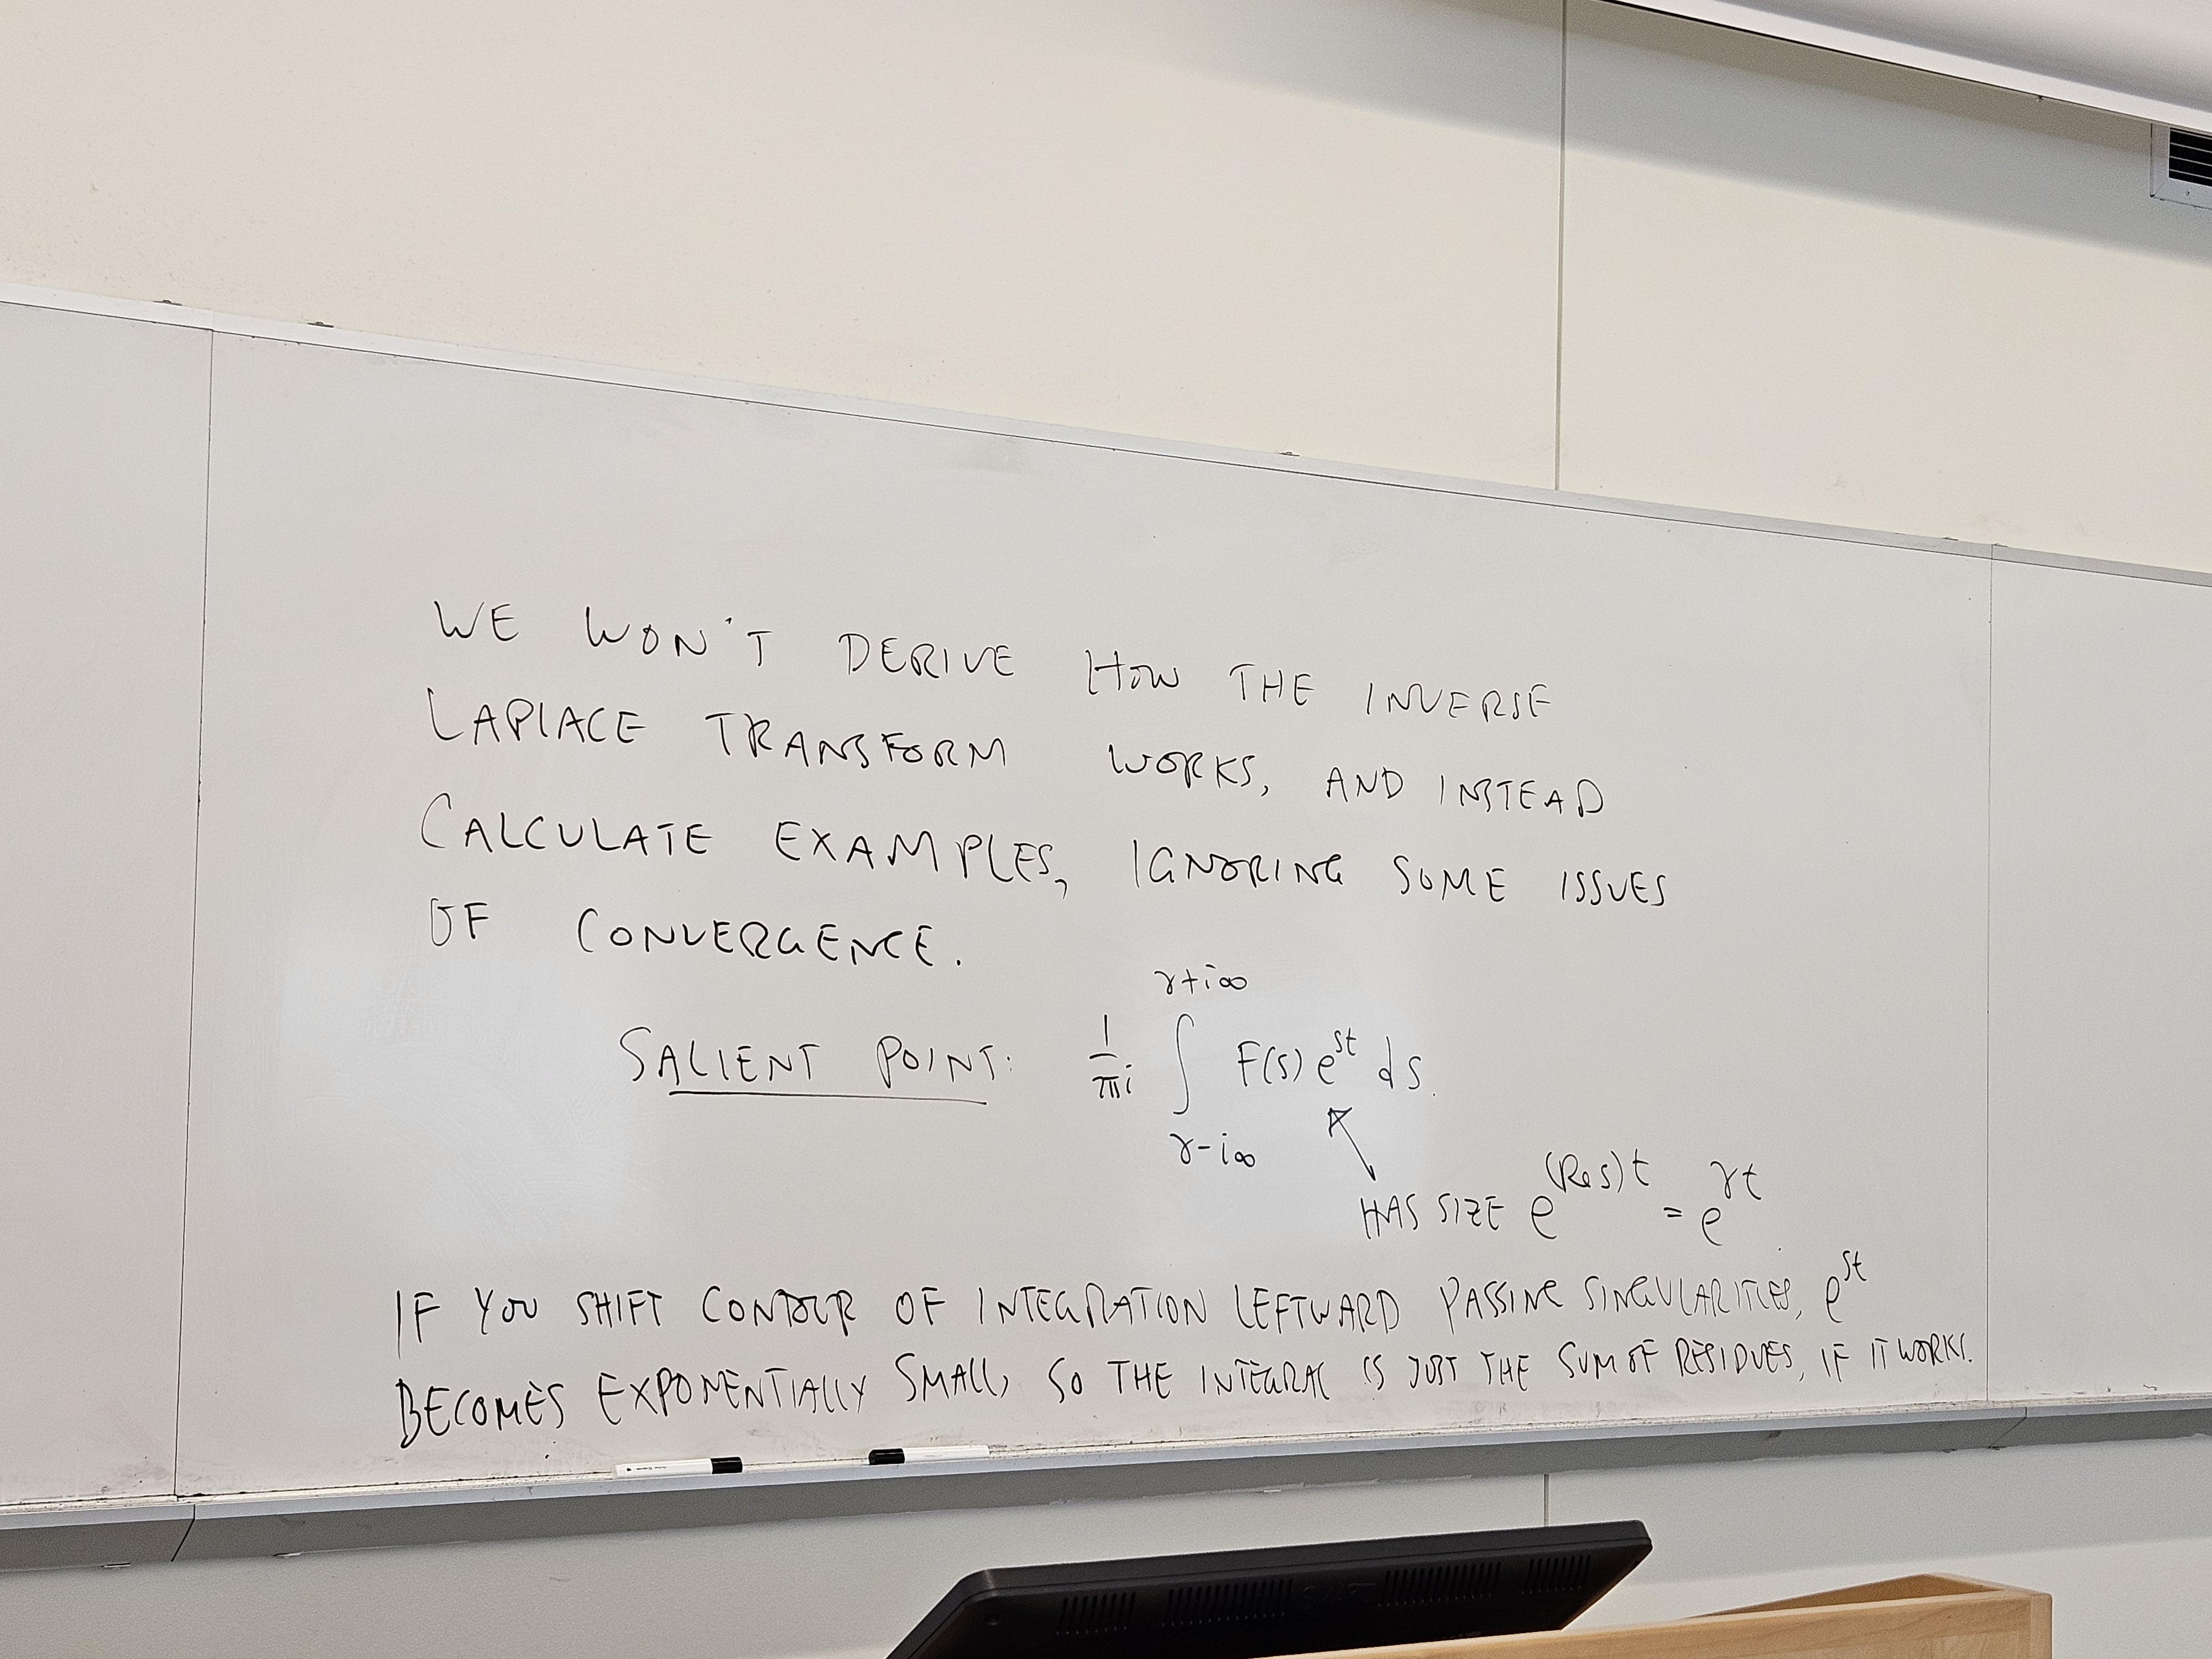 WE WON'T DERIVE HOW THE INVERSE
LAPLACE TRANSFORM WORKS, AND INSTEAD
CALCULATE EXAMPLES, IGNORING SOME ISSUES
OF CONVERGENCE.
SALIENT POINT: 1/πi ∫_{γ-i∞}^{γ+i∞} F(s) e^{st} ds.
HAS SIZE e^{(Re s)t} = e^{γt}
IF YOU SHIFT CONTOUR OF INTEGRATION LEFTWARD PASSING SINGULARITIES, e^{st}
BECOMES EXPONENTIALLY SMALL, SO THE INTEGRAL IS JUST THE SUM OF RESIDUES, IF IT WORKS.